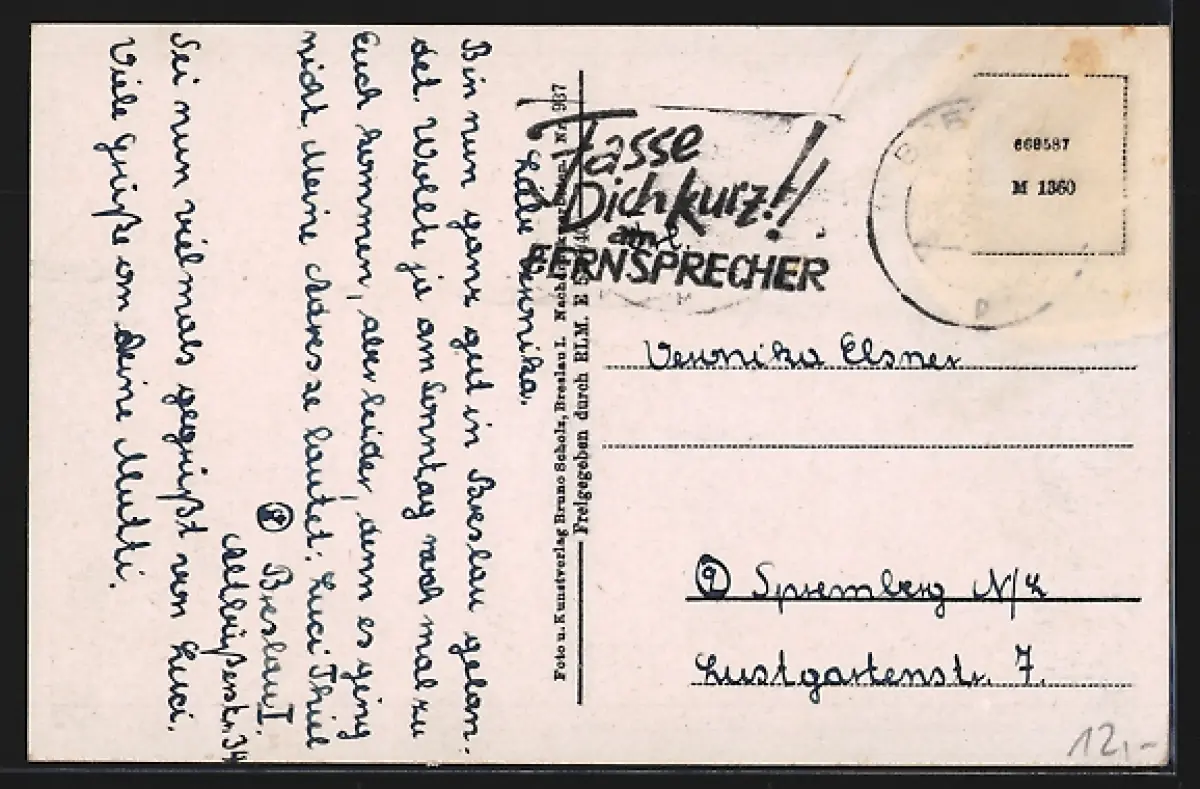 Liebe Veronika.
Bin nun ganz gut in Breslau gelan-
det. Wollte ja am Sonntag noch mal zu
Euch kommen, aber leider, denn es ging
nicht. Meine Adresse lautet: Luci Thiel
⑧ Breslau I.
Altbüßerstr. 34
Sei nun vielmals gegrüßt von Luci.
Viele Grüße an Deine Mutti.
Foto u. Kunstverlag Bruno Scholz, Breslau I. Nr. 987
Freigegeben durch RLM. E
Fasse
Dich kurz!!
am
FERNSPRECHER
668587
M 1360
Veronika Elsner
② Spremberg N/L
Lustgartenstr. 7.
12,-